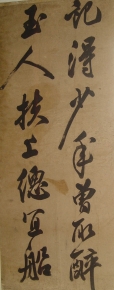 記得少年曾取醉
玉人扶上總宜船